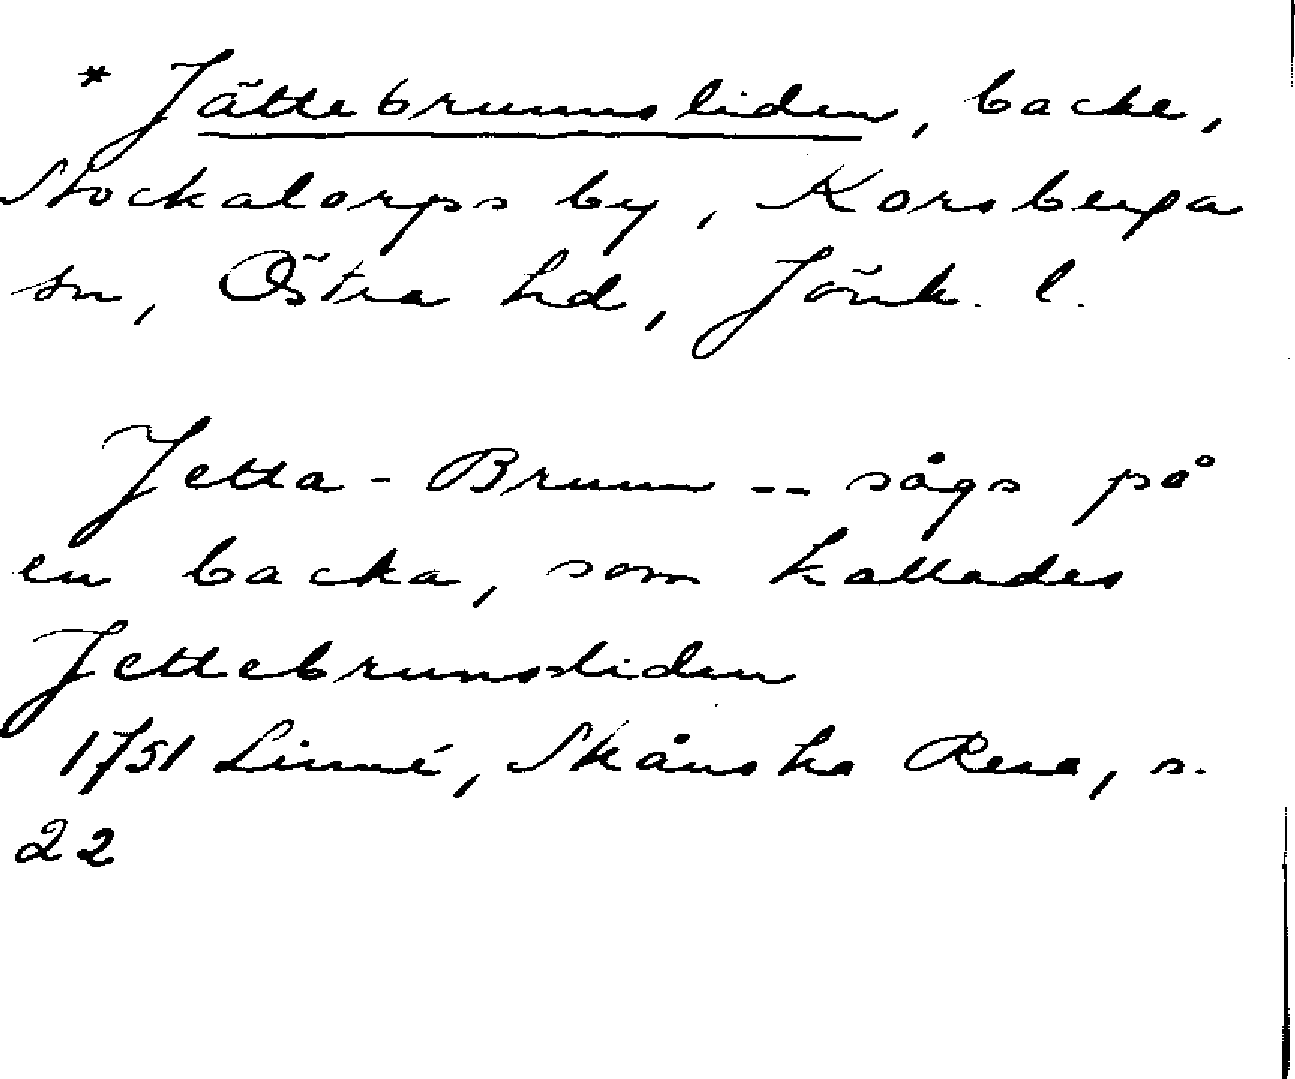 * Jättebrunnsliden, backe,
Stockatorps by, Korsberga
sn, Östra hd, Jönk. l.
Jetta - Brunn -- sågs på
en backa, som kallades
Jettebrunsliden
1751 Linné, Skånska Resa, s.
22